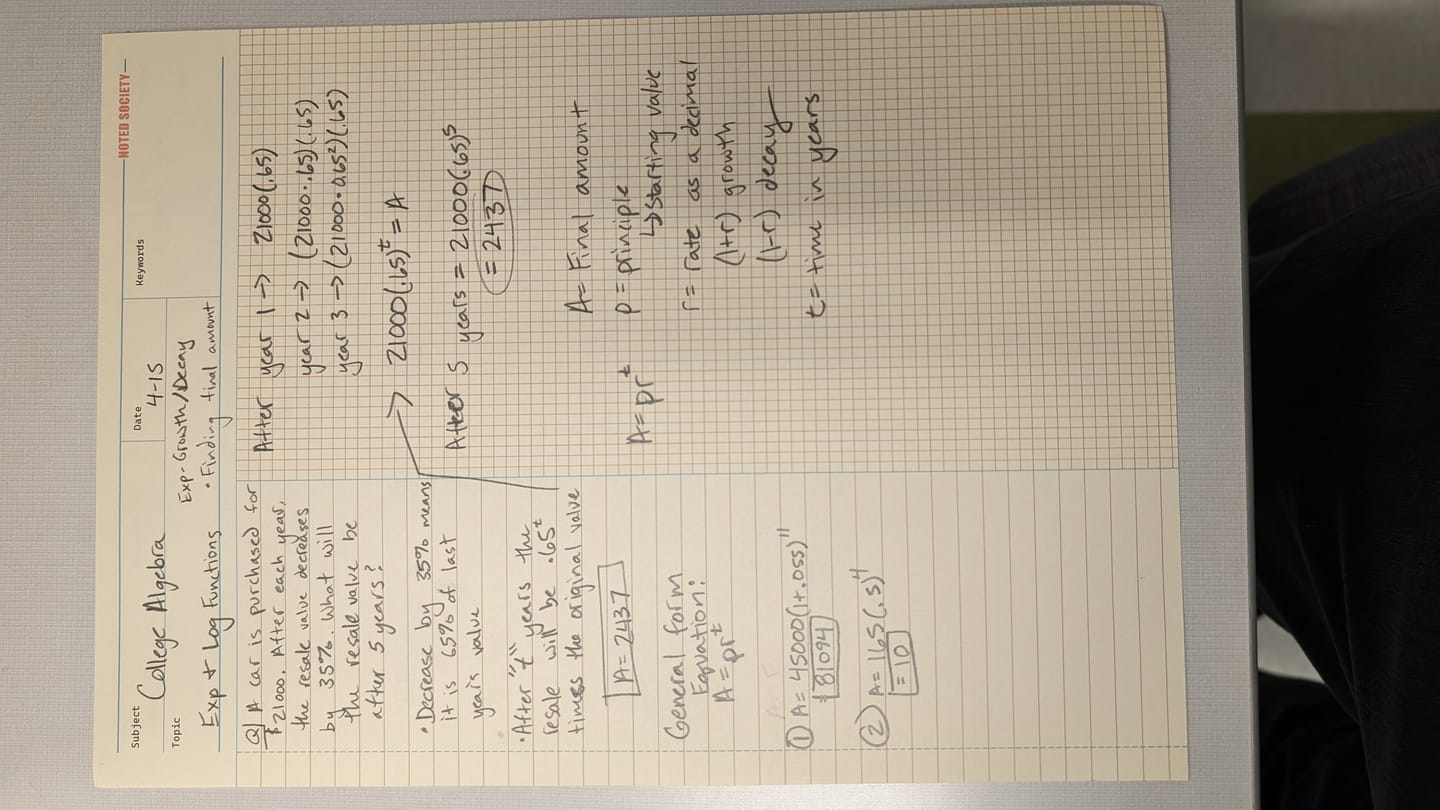 NOTED SOCIETY
Subject
College Algebra
Date
4-15
Keywords
Topic
Exp-Growth/Decay
Exp + Log Functions
• Finding final amount
Q] A car is purchased for
$21000. After each year,
the resale value decreases
by 35%. What will
the resale value be
after 5 years?
• Decrease by 35% means
it is 65% of last
years value
• After "t" years the
resale will be .65^t
times the original value
A = 2437
General form
Equation:
A = pr^t
① A = 45000(1+.055)^11
$81094
② A = 165(.5)^4
= 10
After year 1 → 21000(.65)
year 2 → (21000·.65)(.65)
year 3 → (21000·0.65²)(.65)
→ 21000(.65)^t = A
After 5 years = 21000(.65)^5
= 2437
A = Final amount
A = pr^t
p = principle
↳ Starting value
r = rate as a decimal
(1+r) growth
(1-r) decay
t = time in years